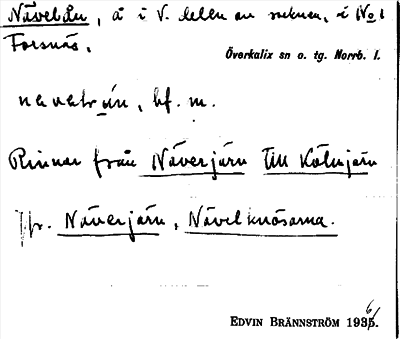 Nävelån, å i V. delen av socknen, i No 1
Forsnäs.
Överkalix sn o. tg. Norrb. l.
bf. m.
Rinner från Näverjärn till Kölnjärn
Jfr. Näverjärn, Nävelknösarna.
EDVIN BRÄNNSTRÖM 1936.